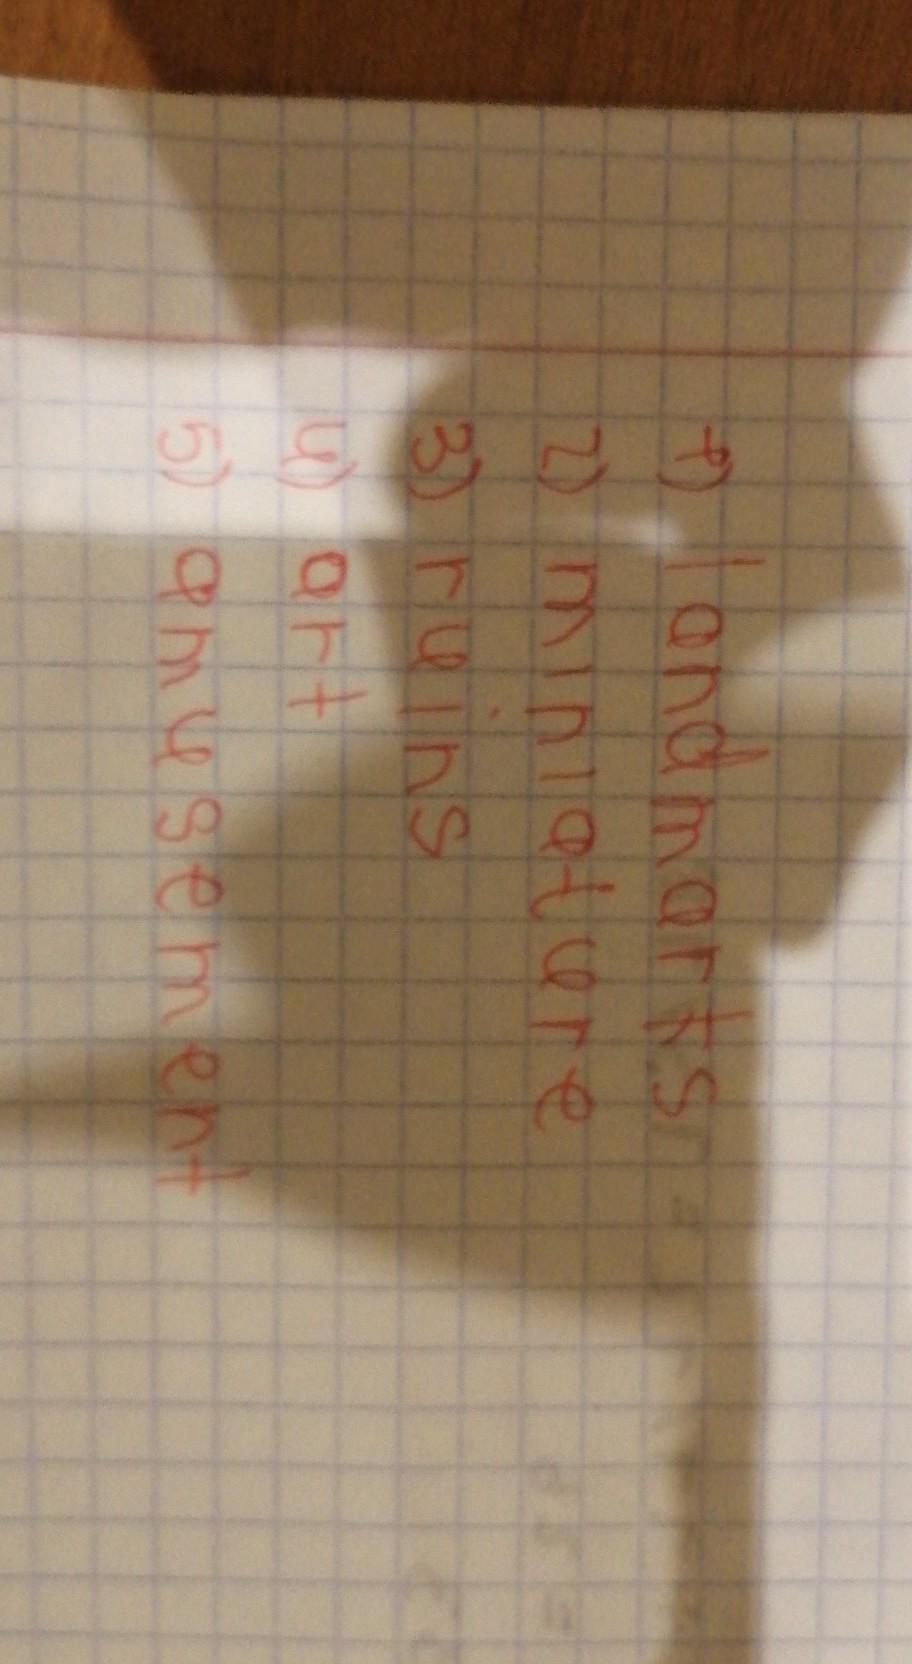 1) landmarks
2) miniature
3) ruins
4) art
5) amusement